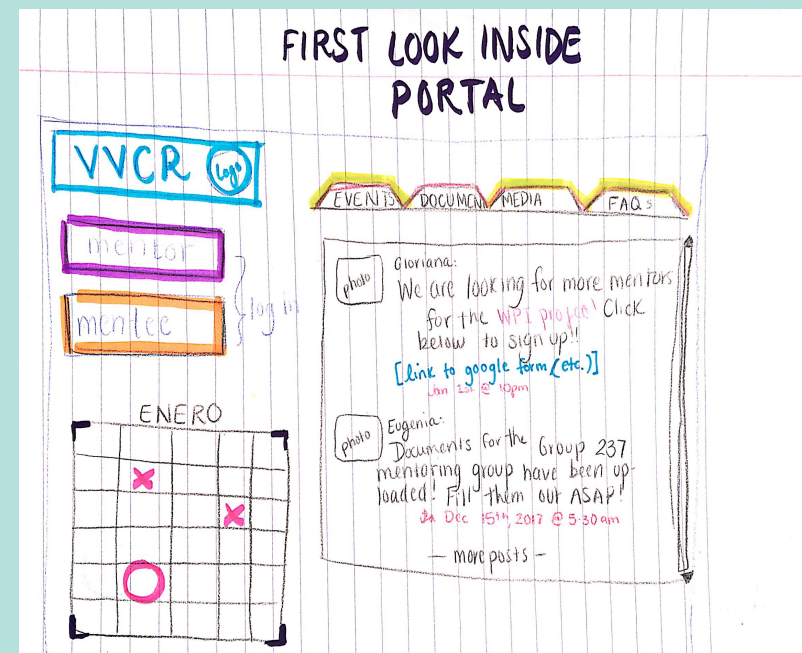 FIRST LOOK INSIDE
PORTAL
VVCR logo
mentor
mentee
log in
ENERO
EVENTS DOCUMEN MEDIA FAQs
photo
Gloriana:
We are looking for more mentors
for the WPI project! Click
below to sign up!!
[link to google form (etc.)]
Jan 1st @ 10pm
photo
Eugenia:
Documents for the Group 237
mentoring group have been up-
loaded! Fill them out ASAP!
Dec 15th, 2017 @ 5:30am
— more posts —